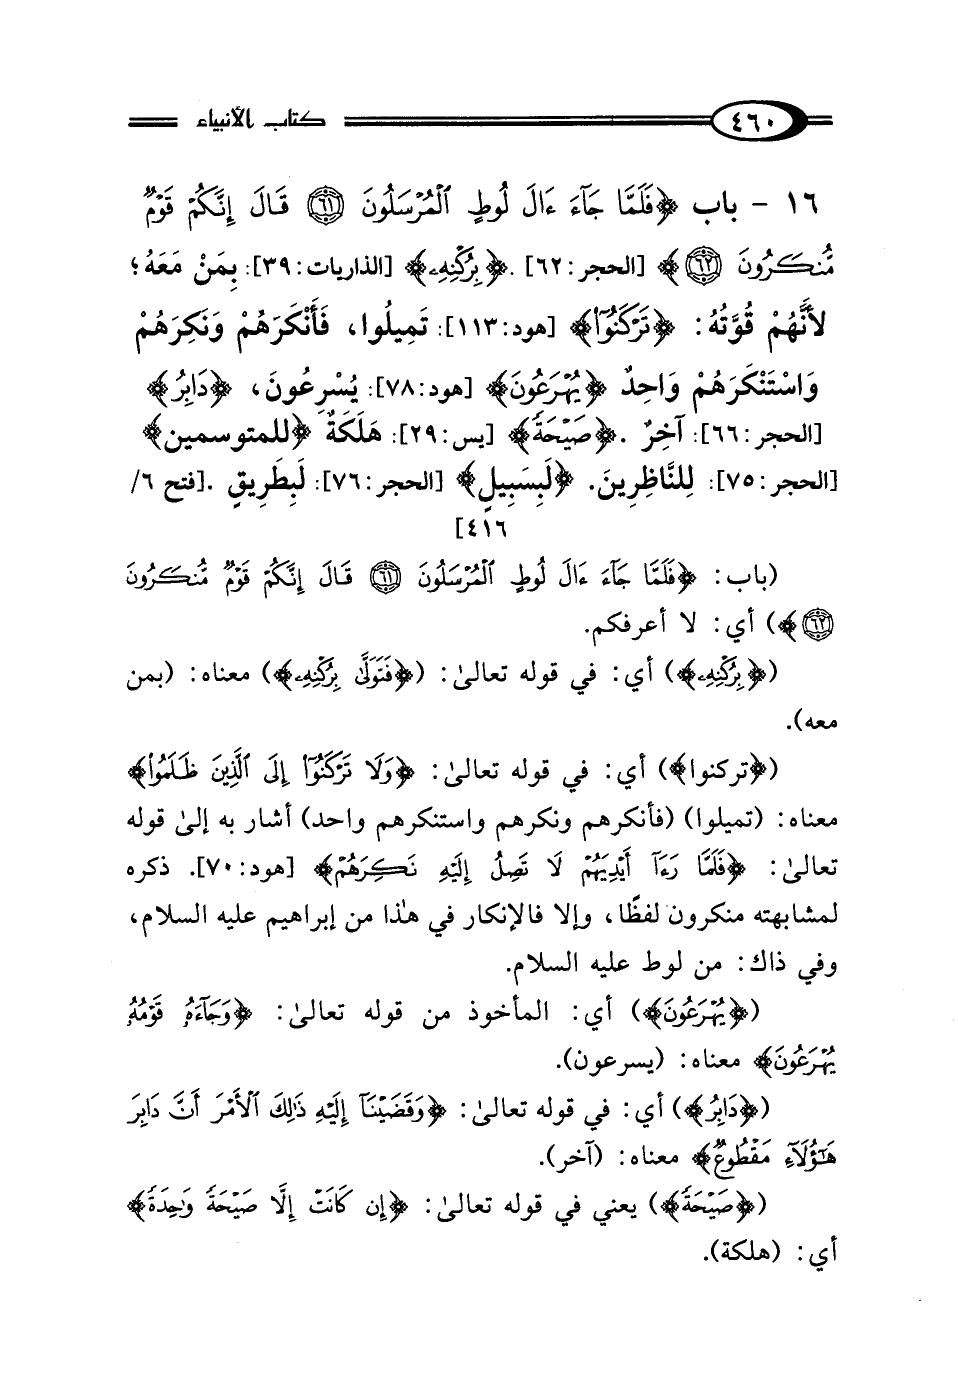 ٤٦٠ كتاب الأنبياء
١٦ - باب ﴿فَلَمَّا جَآءَ ءَالَ لُوطٍ ٱلْمُرْسَلُونَ ٦١ قَالَ إِنَّكُمْ قَوْمٌ
مُّنكَرُونَ ٦٢﴾ [الحجر: ٦٢]. ﴿بِرُكْنِهِۦ﴾ [الذاريات: ٣٩]: بِمَنْ مَعَهُ؛
لأَنَّهُمْ قُوَّتُهُ: ﴿تَرْكَنُوٓاْ﴾ [هود: ١١٣]: تَمِيلُوا، فَأَنْكَرَهُمْ وَنَكِرَهُمْ
وَاسْتَنْكَرَهُمْ وَاحِدٌ ﴿يُهْرَعُونَ﴾ [هود: ٧٨]: يُسْرِعُونَ، ﴿دَابِرُ﴾
[الحجر: ٦٦]: آخِرٌ. ﴿صَيْحَةٌ﴾ [يس: ٢٩]: هَلَكَةٌ ﴿للمتوسمين﴾
[الحجر: ٧٥]: لِلنَّاظِرِينَ. ﴿لَبِسَبِيلٍ﴾ [الحجر: ٧٦]: لَبِطَرِيقٍ. [فتح ٦/
٤١٦]
(باب: ﴿فَلَمَّا جَآءَ ءَالَ لُوطٍ ٱلْمُرْسَلُونَ ٦١ قَالَ إِنَّكُمْ قَوْمٌ مُّنكَرُونَ
٦٢﴾) أي: لا أعرفكم.
(﴿بِرُكْنِهِۦ﴾) أي: في قوله تعالىٰ: (﴿فَتَوَلَّىٰ بِرُكْنِهِۦ﴾) معناه: (بمن
معه).
(﴿تركنوا﴾) أي: في قوله تعالىٰ: ﴿وَلَا تَرْكَنُوٓاْ إِلَى ٱلَّذِينَ ظَلَمُواْ﴾
معناه: (تميلوا) (فأنكرهم ونكرهم واستنكرهم واحد) أشار به إلىٰ قوله
تعالىٰ: ﴿فَلَمَّا رَءَآ أَيْدِيَهُمْ لَا تَصِلُ إِلَيْهِ نَكِرَهُمْ﴾ [هود: ٧٠]. ذكره
لمشابهته منكرون لفظًا، وإلا فالإنكار في هٰذا من إبراهيم عليه السلام،
وفي ذاك: من لوط عليه السلام.
(﴿يُهْرَعُونَ﴾) أي: المأخوذ من قوله تعالىٰ: ﴿وَجَآءَهُۥ قَوْمُهُۥ
يُهْرَعُونَ﴾ معناه: (يسرعون).
(﴿دَابِرُ﴾) أي: في قوله تعالىٰ: ﴿وَقَضَيْنَآ إِلَيْهِ ذَٰلِكَ ٱلْأَمْرَ أَنَّ دَابِرَ
هَٰٓؤُلَآءِ مَقْطُوعٌ﴾ معناه: (آخر).
(﴿صَيْحَةٌ﴾) يعني في قوله تعالىٰ: ﴿إِن كَانَتْ إِلَّا صَيْحَةً وَٰحِدَةً﴾
أي: (هلكة).